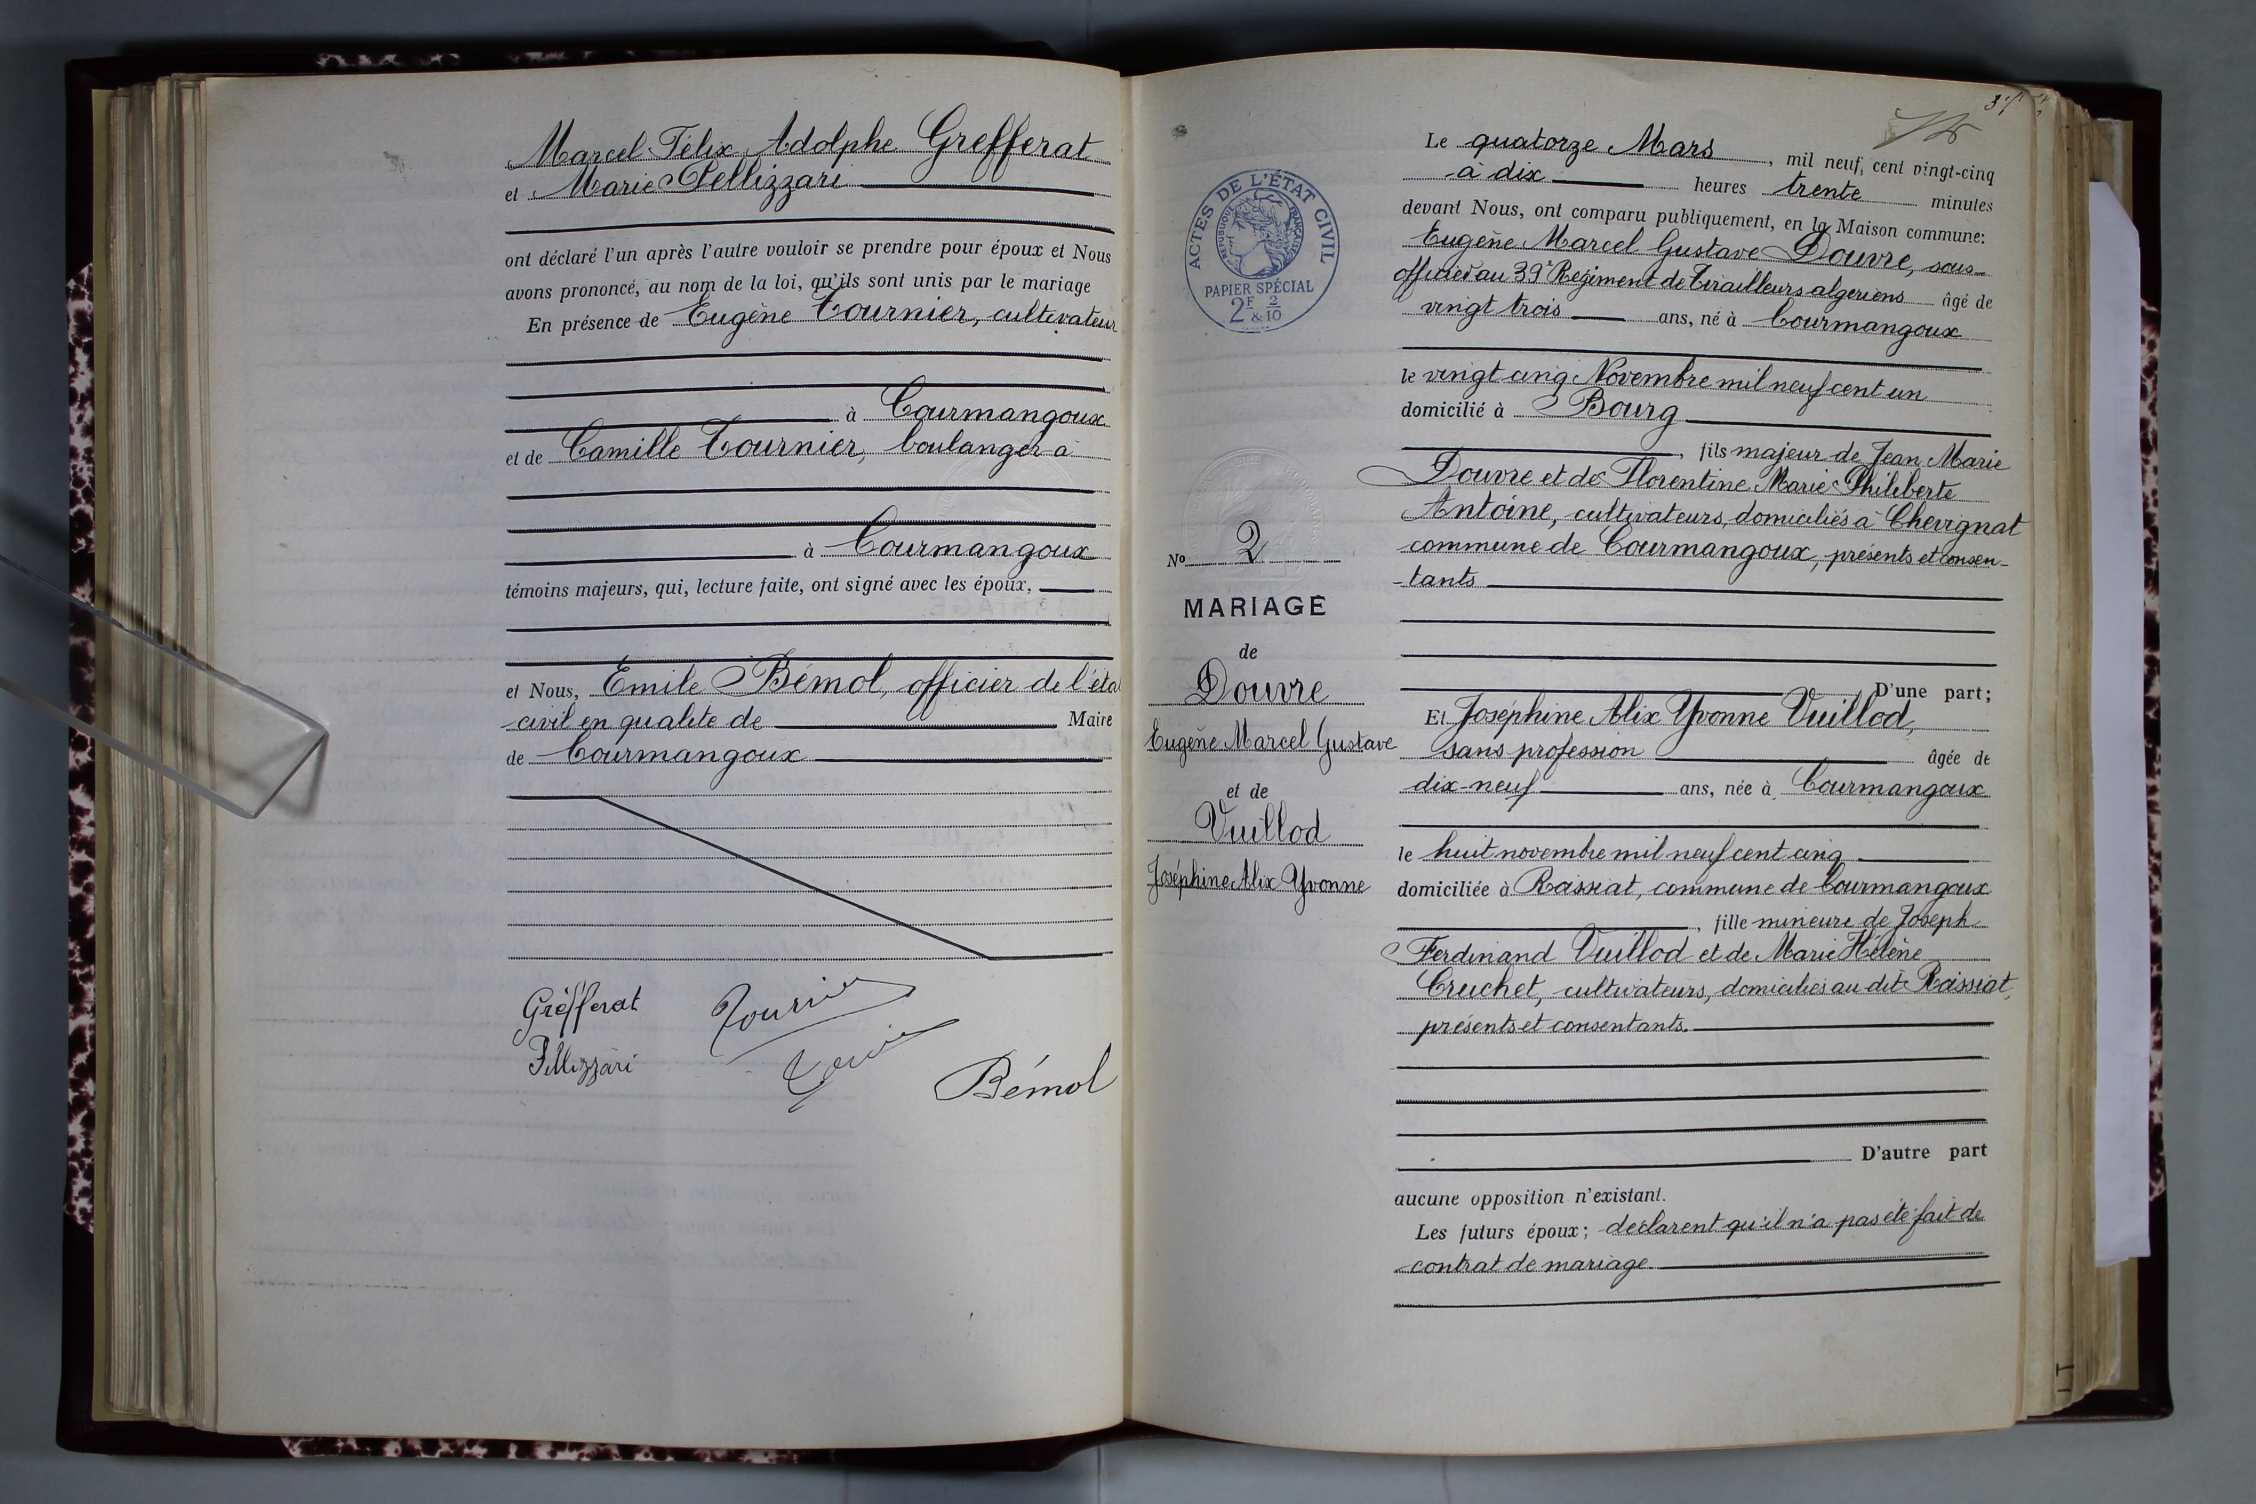 Marcel Félix Adolphe Grefferat
et Marie Pellizzari
ont déclaré l'un après l'autre vouloir se prendre pour époux et Nous
avons prononcé, au nom de la loi, qu'ils sont unis par le mariage
En présence de Eugène Tournier, cultivateur
à Courmangoux
et de Camille Tournier, boulanger à
à Courmangoux
témoins majeurs, qui, lecture faite, ont signé avec les époux,
et Nous, Emile Bémol, officier de l'éta
civil en qualité de Maire
de Courmangoux
Grefferat Tournier
Pellizzari
Bémol
Le quatorze Mars, mil neuf cent vingt-cinq
à dix heures trente minutes
devant Nous, ont comparu publiquement, en la Maison commune:
Eugène Marcel Gustave Douvre, sous-
officier au 39e Régiment de Tirailleurs algeriens âgé de
vingt trois ans, né à Courmangoux
le vingt cinq Novembre mil neuf cent un
domicilié à Bourg
, fils majeur de Jean Marie
Douvre et de Florentine Marie Philiberte
Antoine, cultivateurs, domiciliés à Chevignat
commune de Courmangoux, présents et consen-
-tants
D'une part;
Et Joséphine Alix Yvonne Vuillod,
sans profession âgée de
dix-neuf ans, née à Courmangoux
le huit novembre mil neuf cent cinq
domiciliée à Rassiat, commune de Courmangoux
, fille mineure de Joseph
Ferdinand Vuillod et de Marie Hélène
Cruchet, cultivateurs, domiciliés au dit Rassiat,
présents et consentants.
D'autre part
aucune opposition n'existant.
Les futurs époux; déclarent qu'il n'a pas été fait de
contrat de mariage
ACTES DE L'ÉTAT CIVIL
RÉPUBLIQUE FRANÇAISE
PAPIER SPÉCIAL
2F & 2/10
No 2
MARIAGE
de
Douvre
Eugène Marcel Gustave
et de
Vuillod
Joséphine Alix Yvonne